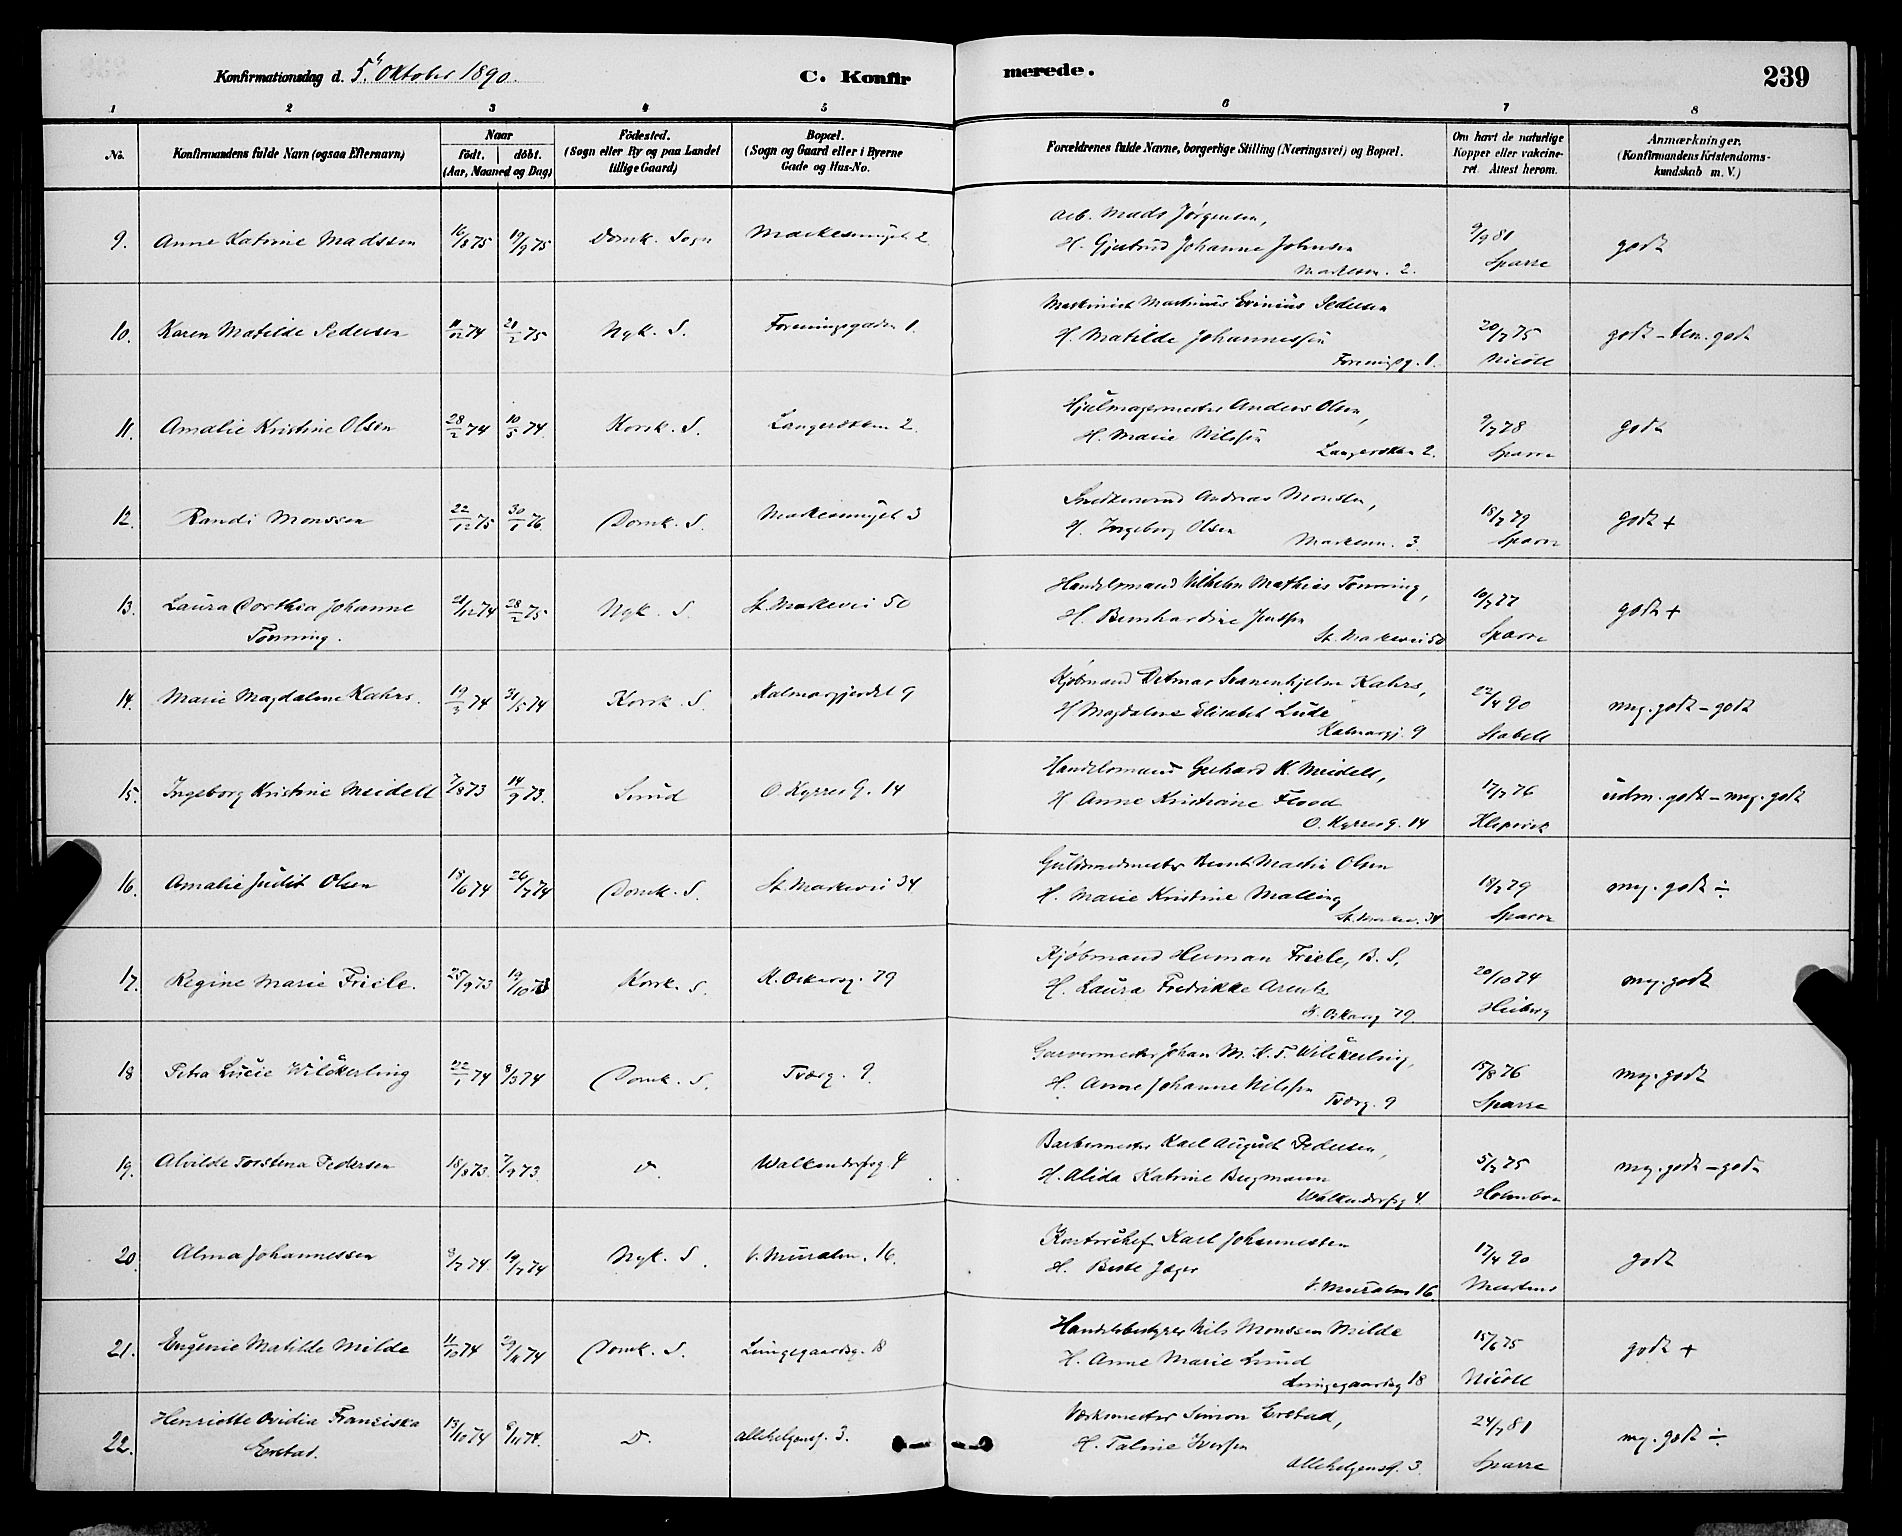 Konfirmationsdag d. 5. Oktober 1890.
C. Konfirmerede.
239
1 2 3 4 5 6 7 8
No.
Konfirmandens fulde Navn (ogsaa Efternavn)
Naar
födt. döbt.
(Aar, Maaned og Dag)
Födested.
(Sogn eller By og paa Landet
tillige Gaard)
Bopæl.
(Sogn og Gaard eller i Byerne
Gade og Hus-No.
Forældrenes fulde Navne, borgerlige Stilling (Næringsvei) og Bopæl.
Om havt de naturlige
Kopper eller vakcine-
ret. Attest herom.
Anmærkninger.
(Konfirmandens Kristendoms-
kundskab m. V.)
9. Anne Katrine Madssen 16/8 75 19/9 75 Domk. Sogn Markesmuget 2
Arb. Mads Jörgensen,
H. Gjertrud Johanne Johnsen
Markesm. 2.
9/9 81
Sparre
godt
10. Karen Matilde Pedersen 11/12 74 21/2 75 Nyk. S. Foreningsgaden 1.
Maskinist Martinus Pedersen
H. Matilde Johannessen
Foreningsg. 1.
20/7 75
Nicoll
godt - tem. godt
11. Amalie Kristine Olsen 28/2 74 10/5 74 Korsk. S. 2.
Hjulmagermester Anders Olsen,
H. Marie Nilssen
2.
9/7 78
Sparre
godt
12. Randi Monssen 22/12 75 30/1 76 Domk. S. Markesmuget 3
Andreas Monsen,
H. Ingeborg Olsen
Markesm. 3.
18/7 79
Sparre
godt +
13. Laura Dorthea Johanne
Tönning. 21/12 74 28/2 75 Nyk. S. St. Markevei 50
Handelsmand Vilhelm Mathias Tönning,
H. Bernhardine Jensen
St. Markevei 50
10/7 77
Sparre
godt +
14. Marie Magdalene Kahrs. 19/3 74 31/5 74 Korsk. S. Kalmargjerdet 9
Kjöbmand Ditmar Svanenhjelm Kahrs,
H. Magdalene Elisabet Lude
Kalmargj. 9
22/4 90
Stabell
meg. godt - godt
15. Ingeborg Kristine Meidell 7/8 73 14/9 73. Sund O. Kyrres G. 14
Handelsmand Gerhard K. Meidell,
H. Anne Kristine Flood
O. Kyrresg. 14
17/7 76
udm. godt - meg. godt
16. Amalie Judit Olsen 18/6 74 26/7 74 Domk. S. St. Markevei 34
Guldsmedmester Bernt Martin Olsen
H. Marie Kristine Malling
St. Markev. 34
18/7 79
Sparre
meg. godt ÷
17. Regine Marie Friele. 25/9 73 19/10 73 Korsk. S. K. Oskarsg. 79
Kjöbmand Herman Friele, B. S,
H. Laura Fredrikke Arentz
K. Oskarsg 79
20/10 74
Heiberg
meg. godt
18 Petra Lucie Wilckerling 22/1 74 8/3 74 Domk. S. Tværg. 9.
Garvermester Johan M. K. T. Wilckerling,
H. Anne Johanne Nilssen
Tværg. 9
15/8 76
Sparre
meg. godt
19. Alvilde Torstena Pedersen 18/8 73. 7/9 73. D. Walkendorfsg. 4
Barbermester Karl August Pedersen,
H. Alida Katrine Bergmann
Walkendorfsg 4.
5/7 75
Holmboe
meg. godt - godt
20. Alma Johannessen 8/7 74 19/7 74 Nyk. S. V. Muralm. 16.
Kontorchef Karl Johannessen
H. Berte Jæger
V. Muralm 16.
17/4 90
Martens
godt
21. Eugenie Matilde Milde 11/10 74 29/11 74 Domk. S. Lungegaardsg. 18
Handelsbestyrer Nils Monssen Milde
H. Anne Marie Lund
Lungegaardsg 18
15/6 75
Nicoll
godt +
22. Henriette Ovidia Franziska
Erstad. 13/10 74 8/11 74. D. Allehelgensg. 3.
Værkmester Simon Erstad,
H. Taline Iversen
Allehelgensg. 3.
24/7 81
Sparre
meg. godt ÷